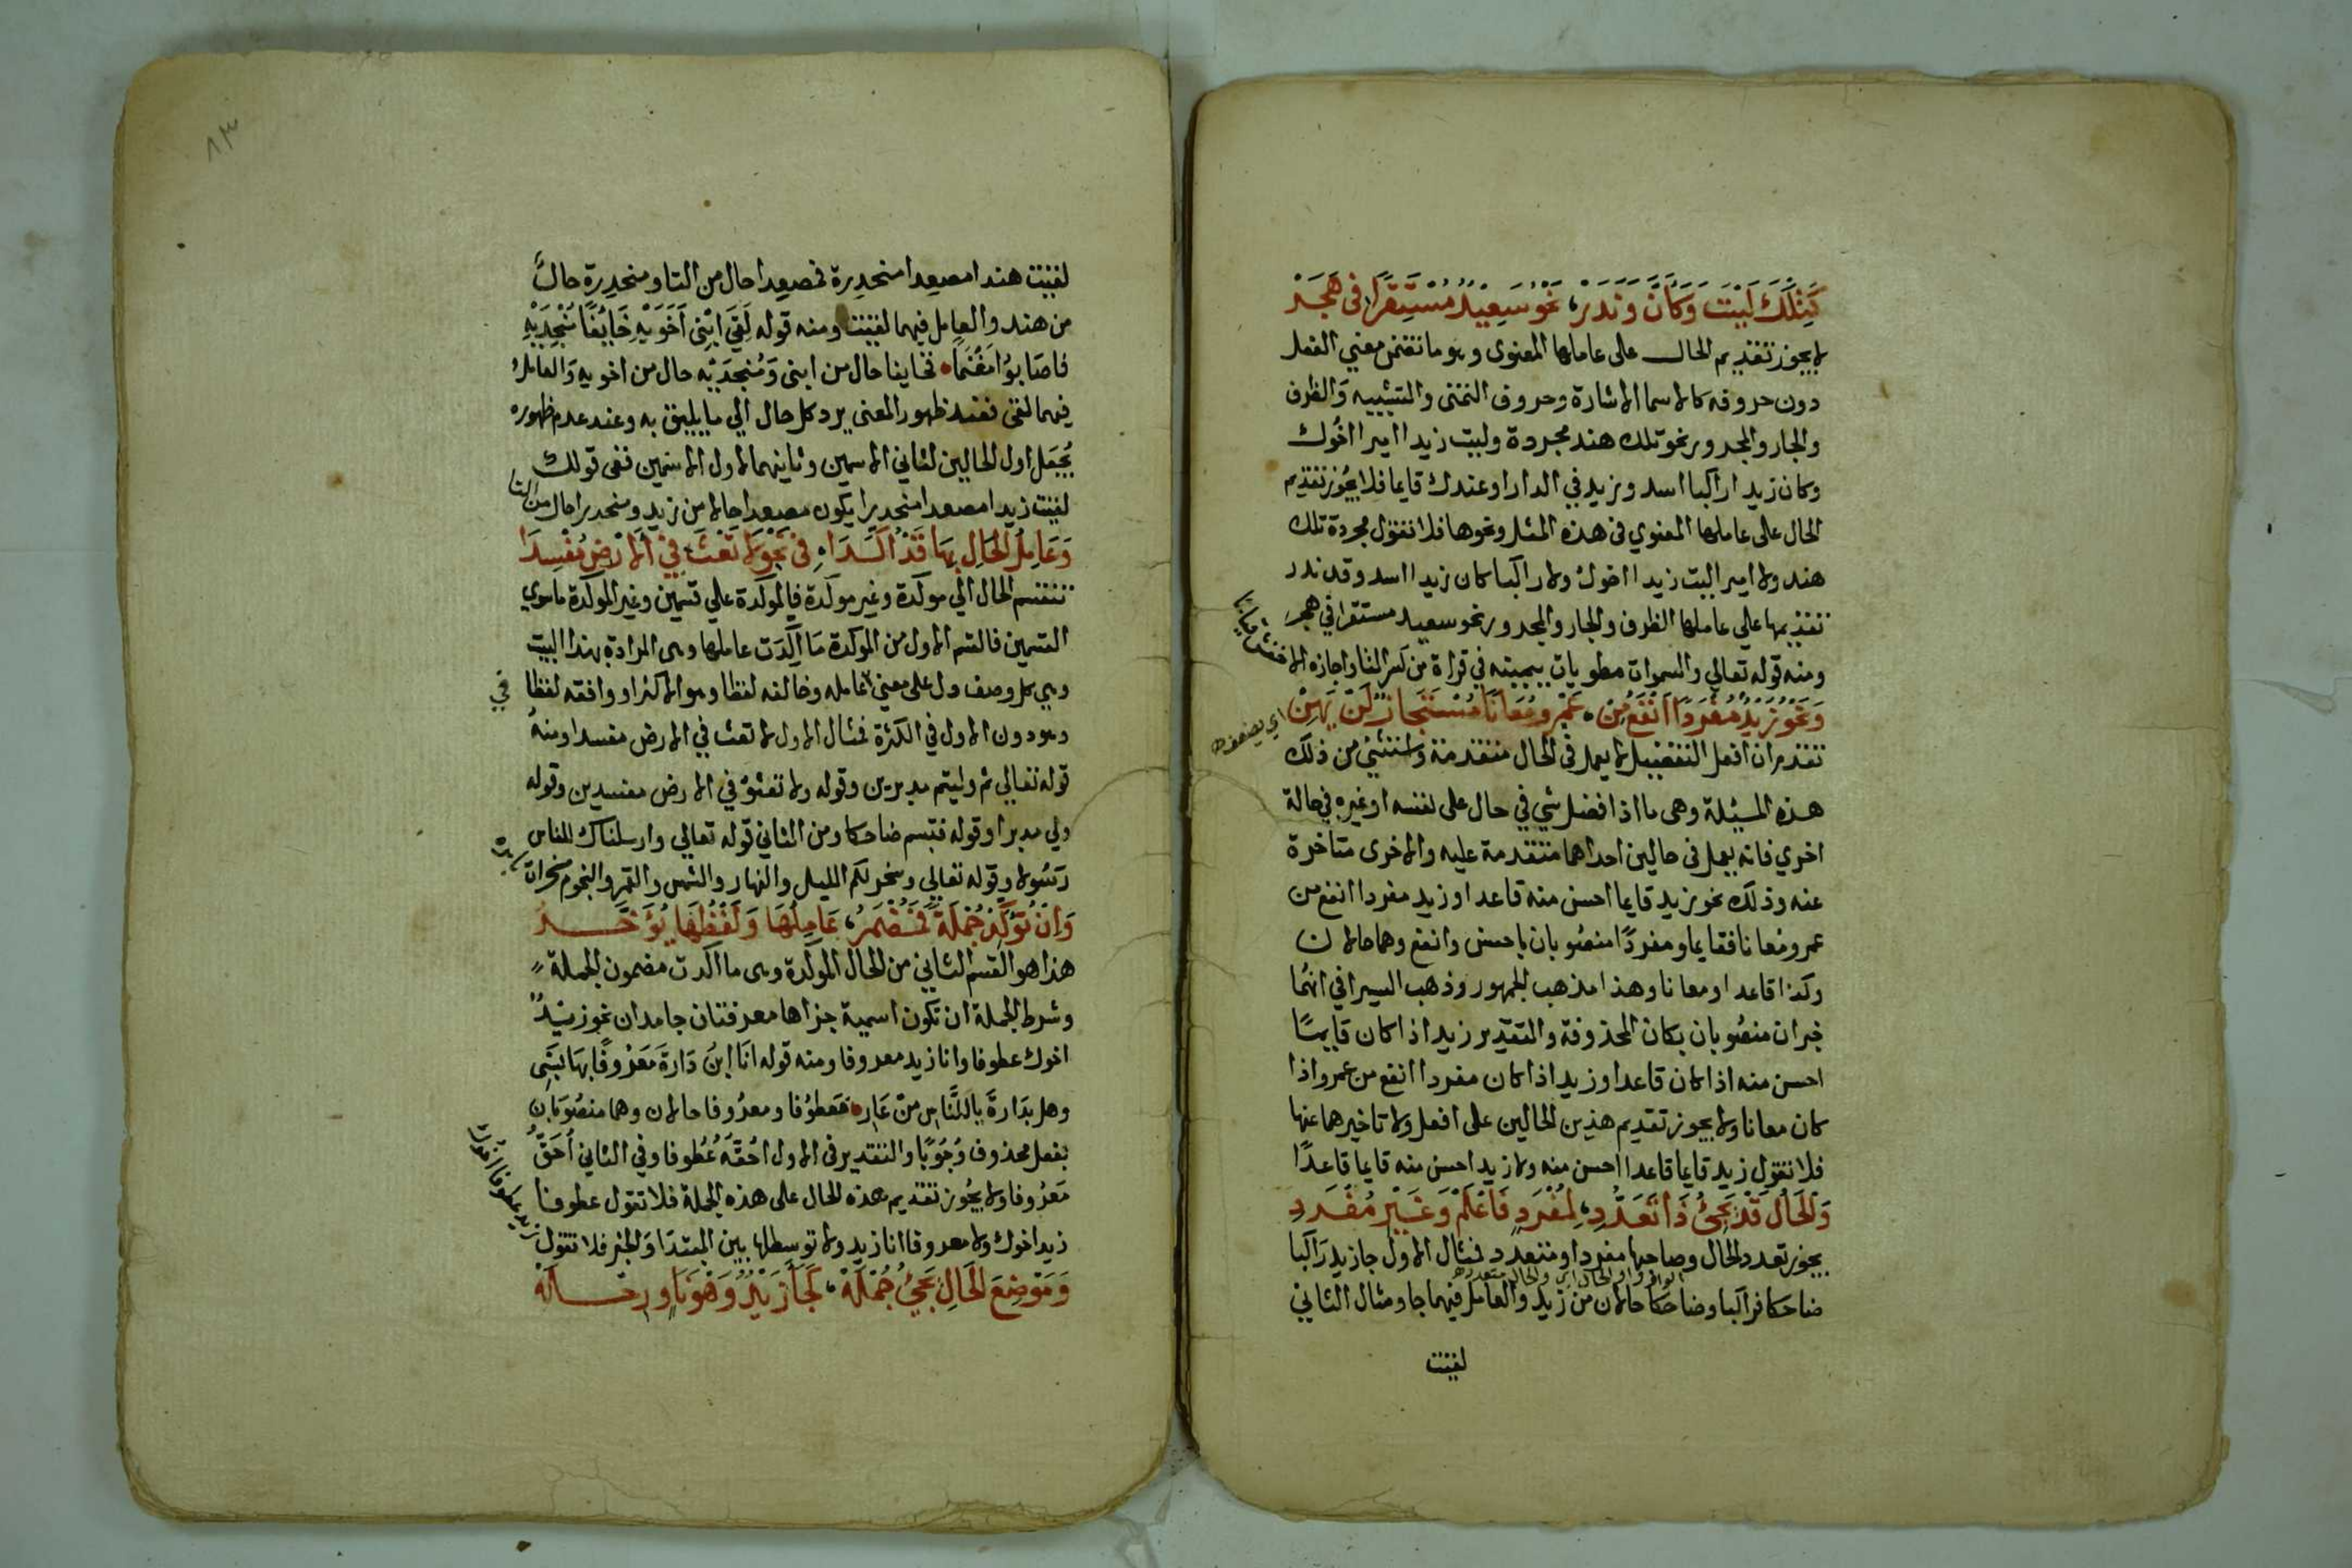 كَتِلْكَ لَيْتَ وَكَأَنَّ وَنَدَرْ، نَحْوُ سَعِيْدٌ مُسْتَقِرًّا فِى هَجَرْ
لا يجوز تقديم الحال على عاملها المعنوى وهو ما تضمن معني الفعل
دون حروفه كاسما الاشارة وحروف التمنى والتشبيه وَالظرف
والجار والمجرور نحو تلك هند مجردة وليت زيدا اميرا اخُوك
وكان زيدا راكبا اسد وزيد في الدار او عندك قايما فلا يجُوز تقديم
الحال على عاملها المعنوي فى هذه المثل ونحوها فلا تقول مجردة تلك
هند ولا اميرا ليت زيدا اخوك ولا راكبا كان زيدا اسد وقد ندر
تقديمها علي عاملها الظرف والجار والمجرور نحو سعيد مستقرا في هجر
ومنه قوله تعالي والسموات مطويات بيمينه في قراة من كسر التا واجازه الاخفش قياسا
وَنَحْوُ زَيْدٌ مُفْرَدًا اَنْفَعُ مِنْ، عَمْرٍو مُعَانًا مُسْتَجَازٌ لَنْ يَهِنْ
اي يضعف
تقدم ان افعل التفضيل لا يعمل فى الحال متقدمة واستثني من ذلك
هذه المسئلة وهى ما اذا فضل شي في حال على نفسه او غيره في حالة
اخري فانه يعمل فى حالين احداهما متقدمة عليه والاخرى متاخرة
عنه وذلك نحو زيد قايما احسن منه قاعدا وزيد مفردا انفع من
عمرو معانا فقايما ومفردًا منصُوبان باحسن وانفع وهما حالان
وكذا قاعدا ومعانا وهذا مذهب الجمهور وذهب السيرافي انهُما
خبران منصُوبان بكان المحذوفة والتقدير زيد اذا كان قايمًا
احسن منه اذا كان قاعدا وزيد اذا كان مفردا انفع من عمرو اذا
كان معانا ولا يجوز تقديم هذين الحالين على افعل ولا تاخيرهما عنها
فلا تقول زيد قايما قاعدا احسن منه ولا زيد احسن منه قايما قاعدًا
وَالحَالُ قَدْ يَجِئُ ذَا تَعَدُّدِ، لِمُفْرَدٍ فَاعْلَمْ وَغَيْرِ مُفْرَدِ
يجوز تعدد الحال وصاحبها مفرد او متعدد فمثال الاول جا زيد رَاكبا
ضاحكا فراكبا وضاحكا حالان من زيد والعامل فيهما جا ومثال الثاني
لقيت
٨٣
لقيت هندا مصعدا منحدرة فمصعدا حال من التا ومنحدرة حالٌ
من هند والعامل فيهما لقيت ومنه قوله لَقِيَ ابْنِى اَخَوَيْهِ خَائِفًا مُنْجِدَيْهِ
فاصَابُوْا مَغْنَمًا، فخايفا حال من ابنى وَمُنجدَيْه حال من اخويه وَالعاملُ
فيهما لقى فعند ظهور المعنى يرد كل حال الي ما يليق به وعند عدم ظهوره
يُجعَل اول الحالين لثاني الاسمين وثانيهما لاول الاسمين ففى قولك
لقيت زيدا مصعدا منحدرا يكون مصعدا حالا من زيد ومنحدرا حال من التا
وَعَامِلُ الحَالِ بِهَا قَدْ اُكِّدَا، فِى نَحْوِ لَا تَعْثَ فِي الاَرْضِ مُفْسِدَا
تنقسم الحال الي موكدة وغير موكدة فالموكدة علي قسمين وغير الموكدة ما سوي
القسمين فالقسم الاول من الموكدة مَا اكّدَت عاملها وهى المرادة بهذا البيت
وهي كل وصف دل على معنى عامله وخالفه لفظا وهو الاكثر او وافقه لفظا
وهو دون الاول في الكثرة فمثال الاول لا تعث في الارض مفسدا ومنهُ
قوله تعالي ثم وليتم مدبرين وقوله ولا تعثوْ في الارض مفسدين وقوله
ولي مدبرا وقوله فتبسم ضاحكا ومن الثاني قوله تعالي وارسلناك للناس
رسُولا وقوله تعالي وسخر لكم الليل والنهار والشمس والقمر والنجوم مسخرات
وَاِنْ تُؤَكِّدْ جُمْلَةً فَمُضْمَرُ، عَامِلُهَا وَلَفْظُهَا يُؤَخَّرُ
هذا هو القسم الثاني من الحال الموكدة وهى ما اكدت مضمون الجملة
وشرط الجملة ان تكون اسمية جزاها معرفتان جامدان نحو زيدٌ
اخوك عطوفا وانا زيد معروفا ومنه قوله اَنَا ابنُ دَارةَ مَعْرُوفًا بِهَا نَسَبِى
وهل بدَارةَ يا للنَّاس من عَار، فعطوُفا ومعرُوفا حالان وهما منصُوبَان
بفعل محذوف وُجُوبًا والتقدير فى الاول احُقّهُ عُطُوفا وفي الثاني اُحَقُّ
مَعرُوفا ولا يجُوز تقديم هذه الحال على هذه الجملة فلا تقول عطوفا
زيد اخوك ولا معروفا انا زيد ولا توسطها بين المبتدَا وَالخبر فلا تقول
زيد عطوفا اخوك
وَمَوْضِعَ الحَالِ تَجِيْ جُمْلَهْ، كَجَا زَيْدٌ وَهْوَ نَاوٍ رِحْلَهْ